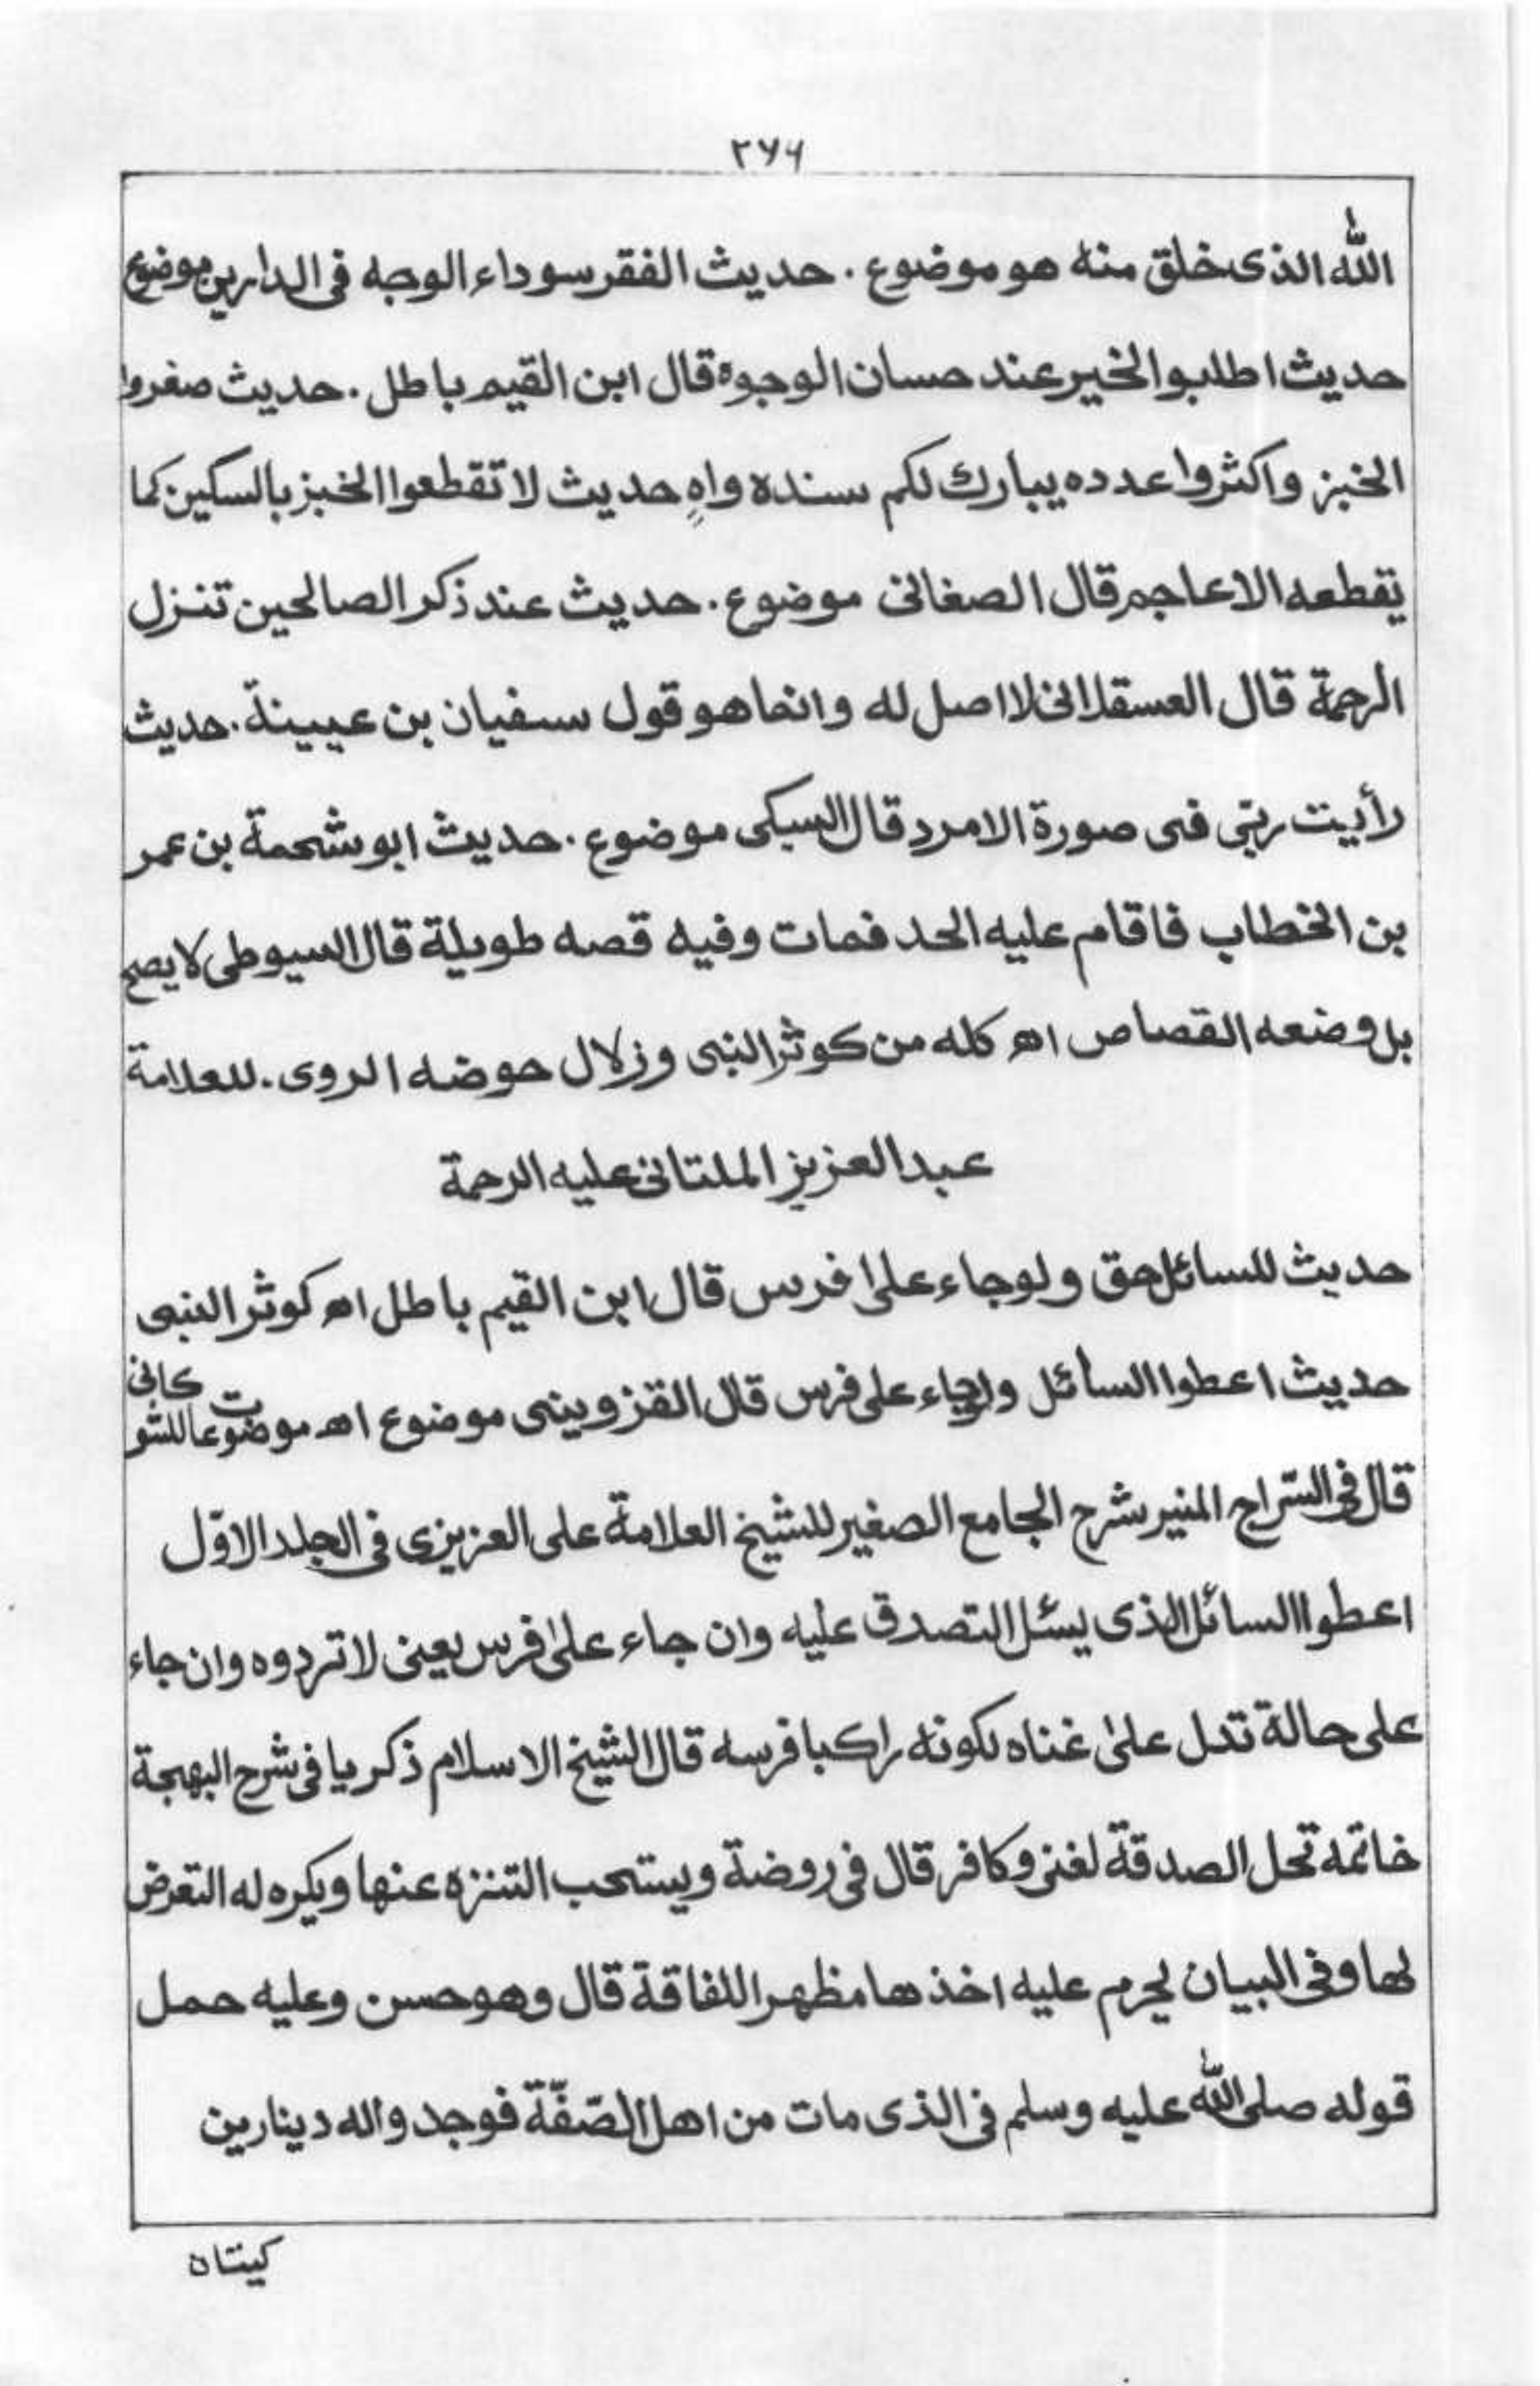 ۲۷۶
الله الذی خلق منه هو موضوع . حدیث الفقر سوداء الوجه فی الدارین موضوع
حدیث اطلبوا الخیر عند حسان الوجوه قال ابن القیم باطل . حدیث صغروا
الخبز واکثروا عدده یبارک لکم سنده واهٍ حدیث لا تقطعوا الخبز بالسکین کما
یقطعه الاعاجم قال الصغانی موضوع . حدیث عند ذکر الصالحین تنزل
الرحمة قال العسقلانی لا اصل له وانما هو قول سفیان بن عیینة . حدیث
رأیت ربّی فی صورة الامرد قال السبکی موضوع . حدیث ابو شحمة بن عمر
بن الخطاب فاقام علیه الحد فمات وفیه قصه طویلة قال السیوطی لا یصح
بل وضعه القصاص اه کله من کوثر النبی وزلال حوضه الروی . للعلامة
عبد العزیز الملتانی علیه الرحمة
حدیث للسائل حق ولو جاء علیٰ فرس قال ابن القیم باطل اه کوثر النبی
حدیث اعطوا السائل ولو جاء علی فرس قال القزوینی موضوع اه موضوعات للشوکانی
قال فی السّراج المنیر شرح الجامع الصغیر للشیخ العلامة علی العزیزی فی الجلد الاوّل
اعطوا السائل الذی یسئل التصدق علیه وان جاء علیٰ فرس یعنی لا تردوه وان جاء
علی حالة تدل علیٰ غناه لکونه راکبا فرسه قال الشیخ الاسلام ذکریا فی شرح البهجة
خاتمه تحل الصدقة لغنی وکافر قال فی روضة ویستحب التنزه عنها ویکره له التعرض
لها وفی البیان یحرم علیه اخذها مظهرا للفاقة قال وهو حسن وعلیه حمل
قوله صلی الله علیه وسلم فی الذی مات من اهل الصّفّة فوجدوا له دینارین
کیتان